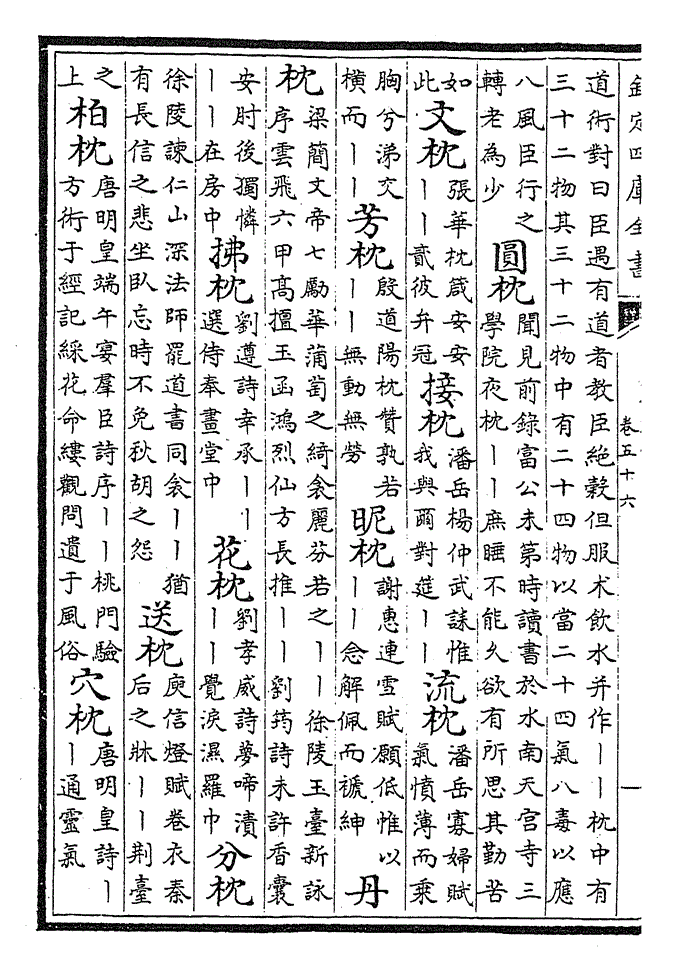 欽定四庫全書
卷五十六
道術對曰臣遇有道者教臣絶穀但服术飲水并作丨丨枕中有
三十二物其三十二物中有二十四物以當二十四氣八毒以應
八風臣行之
轉老為少
圓枕
聞見前錄富公未第時讀書於水南天宫寺三
學院夜枕丨丨庶睡不能久欲有所思其勤苦
如
此
文枕
張華枕箴安安
丨丨貳彼弁冠
接枕
潘岳楊仲武誄惟
我與爾對筵丨丨
流枕
潘岳寡婦賦
氣憤薄而乘
胸兮涕交
橫而丨丨
芳枕
殷道陽枕贊孰若
丨丨無動無勞
昵枕
謝惠連雪賦願低惟以
丨丨念解佩而褫紳
丹
枕
梁簡文帝七勵華蒲萄之綺衾麗芬若之丨丨徐陵玉臺新詠
序雲飛六甲髙擅玉函鴻烈仙方長推丨丨劉筠詩未許香囊
安肘後獨憐
丨丨在房中
拂枕
劉遵詩幸承丨丨
選侍奉畫堂中
花枕
劉孝威詩夢啼漬
丨丨覺淚濕羅巾
分枕
徐陵諫仁山深法師罷道書同衾丨丨猶
有長信之悲坐臥忘時不免秋胡之怨
送枕
庾信燈賦卷衣秦
后之牀丨丨荆臺
之
上
柏枕
唐明皇端午宴羣臣詩序丨丨桃門驗
方術于經記綵花命縷觀問遺于風俗
穴枕
唐明皇詩丨
丨通靈氣